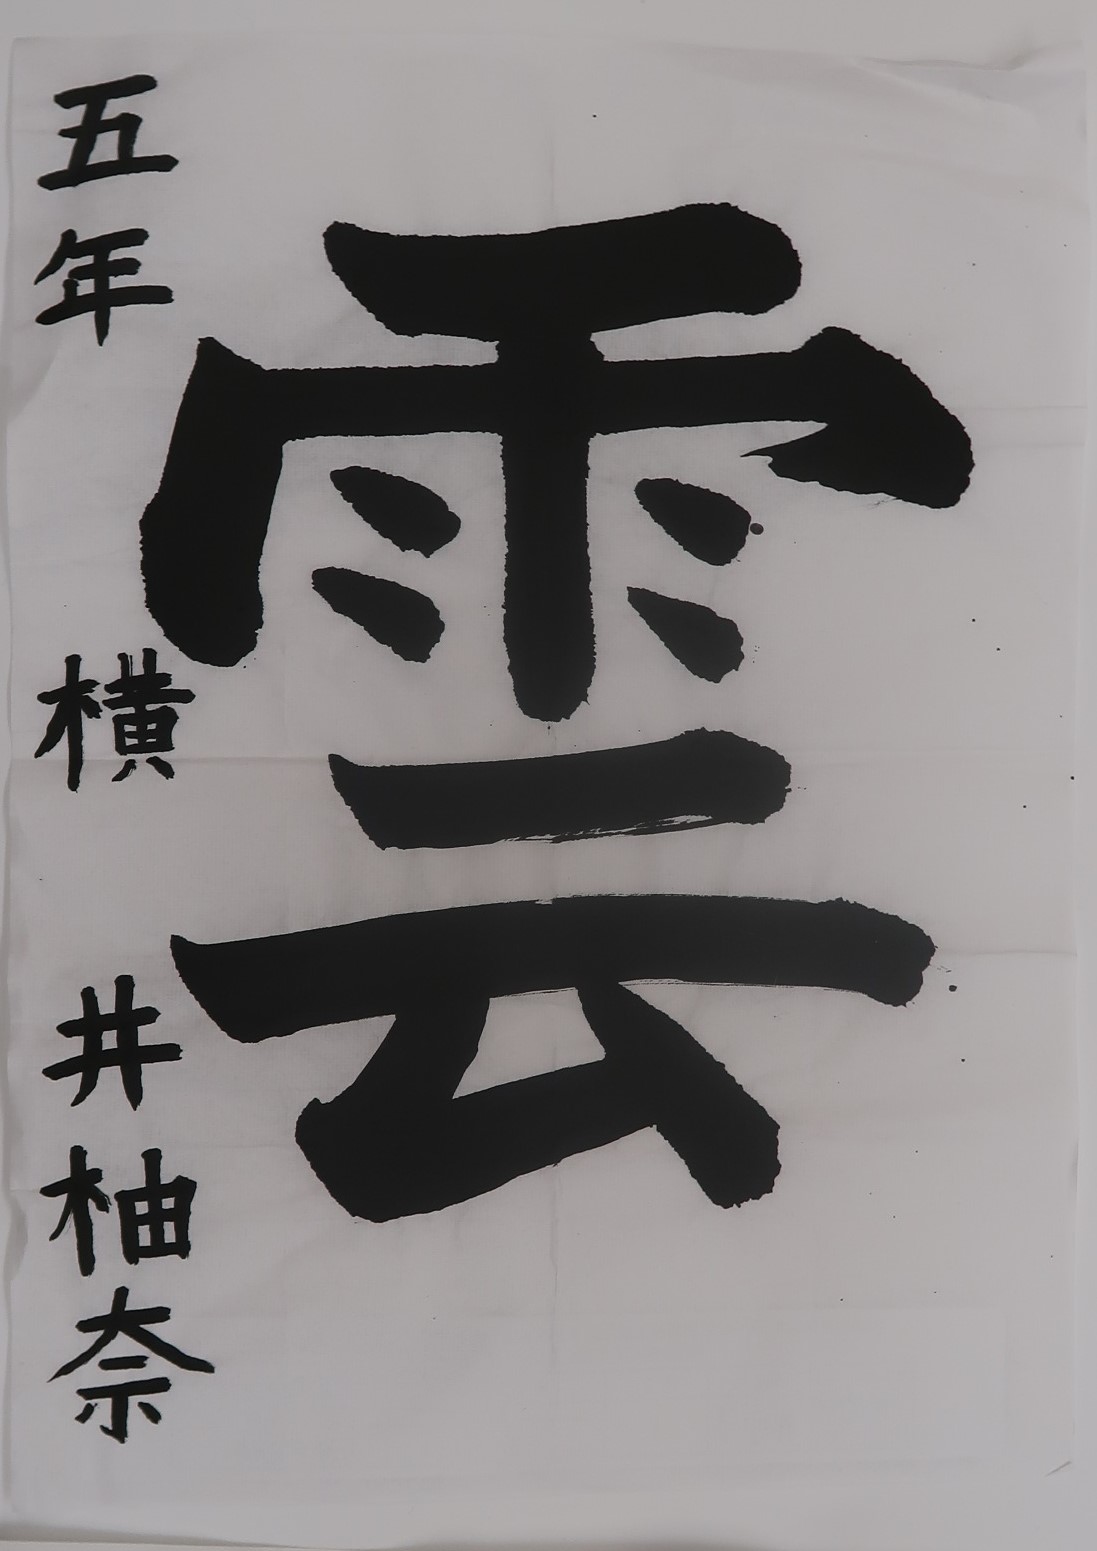 雲
五年 横井柚奈